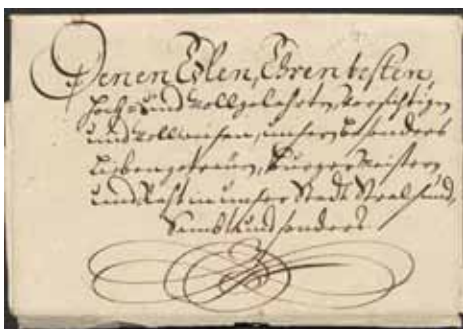 Denen Edlen, Ehrenvesten,
Hoch- und Wollgelahrten, Vorsichtigen
und Wollweisen, unsern besonders
Lieben getreuen, Bürgermeistern
und Raht in unser Stadt Stralsund,
Sambt und sonders.